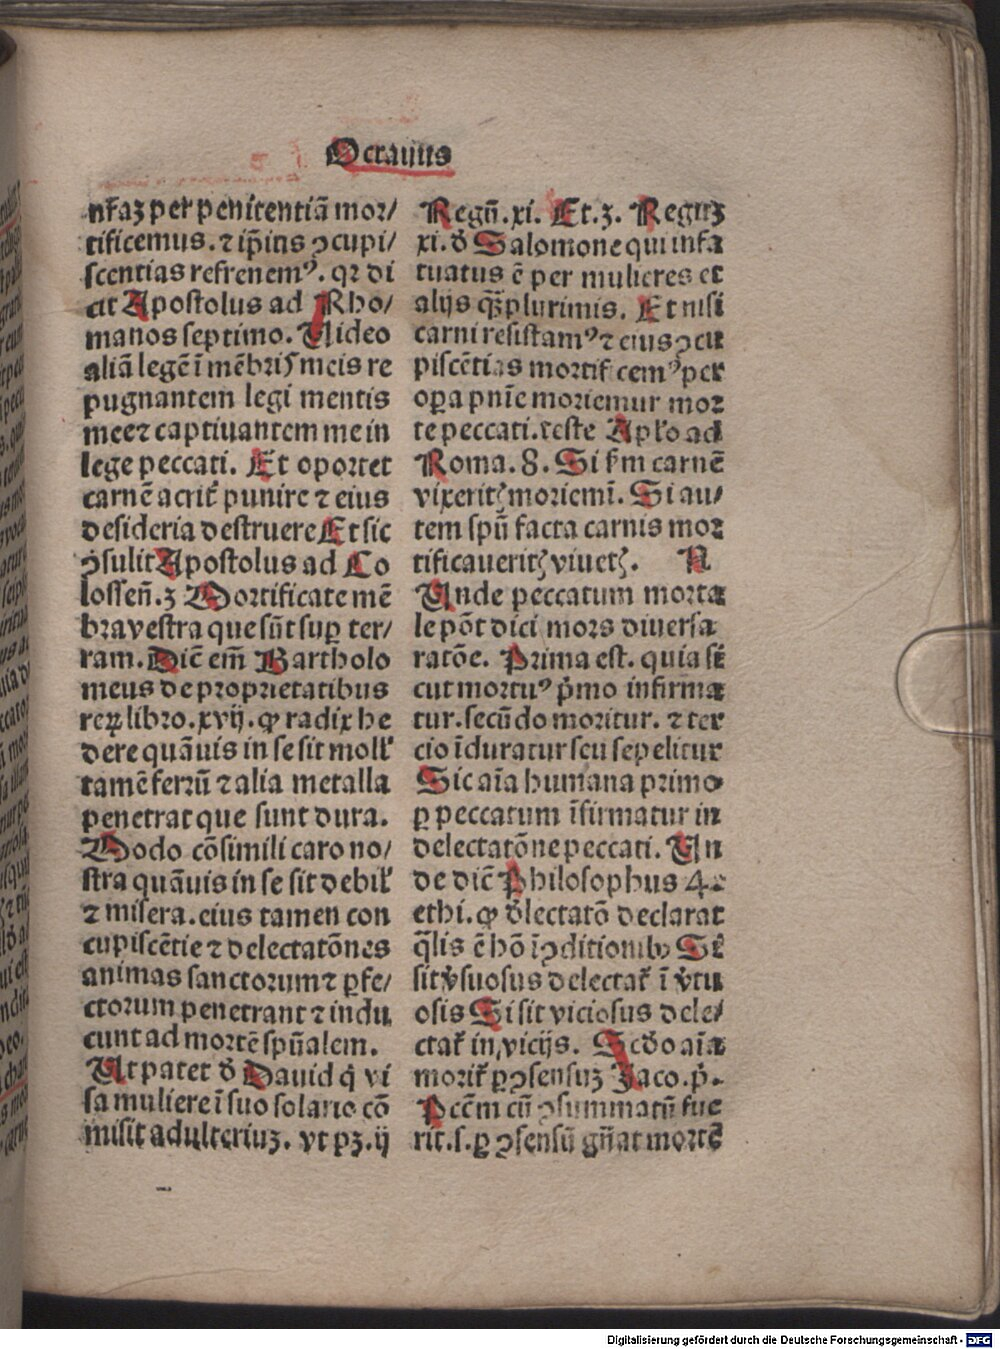 Octauus
nr̄aꝫ per penitentiā mor/
tificemus. ⁊ ip̄ius ꝯcupi/
scentias refrenemꝰ. qꝛ di
cit Apostolus ad Rho/
manos septimo. Uideo
aliā legē ī mēbris meis re
pugnantem legi mentis
mee ⁊ captiuantem me in
lege peccati. Et oportet
carnē acrit᷑ punire ⁊ eius
desideria destruere Et sic
ꝯsulit Apostolus ad Co
lossen̄. 3 Mortificate mē
bra vestra que sūt suꝑ ter/
ram. Dic̄ em̄ Bartholo
meus de proprietatibus
reꝝ libro. xvij. ꝙ radix he
dere quāuis in se sit moll᷑
tamē ferrū ⁊ alia metalla
penetrat que sunt dura.
Modo cōsimili caro no/
stra quāuis in se sit debil᷑
⁊ misera. eius tamen con
cupiscētie ⁊ delectatōnes
animas sanctorum ⁊ ꝑfe/
ctorum penetrant ⁊ indu
cunt ad mortē spūalem.
Ut patet ď Dauid q̇ vi
sa muliere ī suo solario cō
misit adulteriuꝫ. vt pꝫ. ij
Regū. xi. Et. 3. Reguꝫ
xi. ď Salomone qui infa
tuatus ē per mulieres et
alijs qȝplurimis. Et nisi
carni resistamꝰ ⁊ eius ꝯcu
piscētias mortificemꝰ per
oꝑa pnīe moriemur mor
te peccati. teste Apl̓o ad
Roma. 8. Si s̄m carnē
vixeritꝭ moriemī. Si au/
tem spū facta carnis mor
tificaueritꝭ viuetꝭ. N
Unde peccatum morta
le pōt dici mors diuersa
ratōe. Prima est. quia si
cut mortuꝰ pͥmo infirma
tur. secūdo moritur. ⁊ ter
cio īduratur seu sepelitur
Sic aīa humana primo
ꝑ peccatum īfirmatur in
delectatōne peccati. Un
de dic̄ Philosophus 4.
ethi. ꝙ ďlectatō declarat
q̄lis ē hō ī ꝯditionibꝰ Si
sit ṽsuosus delectat᷑ ī ṽtu
osis Si sit viciosus dele/
ctat᷑ in vicijs. Scďo aīa
morit᷑ ꝑ ꝯsensuꝫ Jaco. pͥ.
Pctm̄ cū ꝯsummatū fue
rit. s. ꝑ ꝯsensū gn̄at mortē
Digitalisierung gefördert durch die Deutsche Forschungsgemeinschaft - DFG